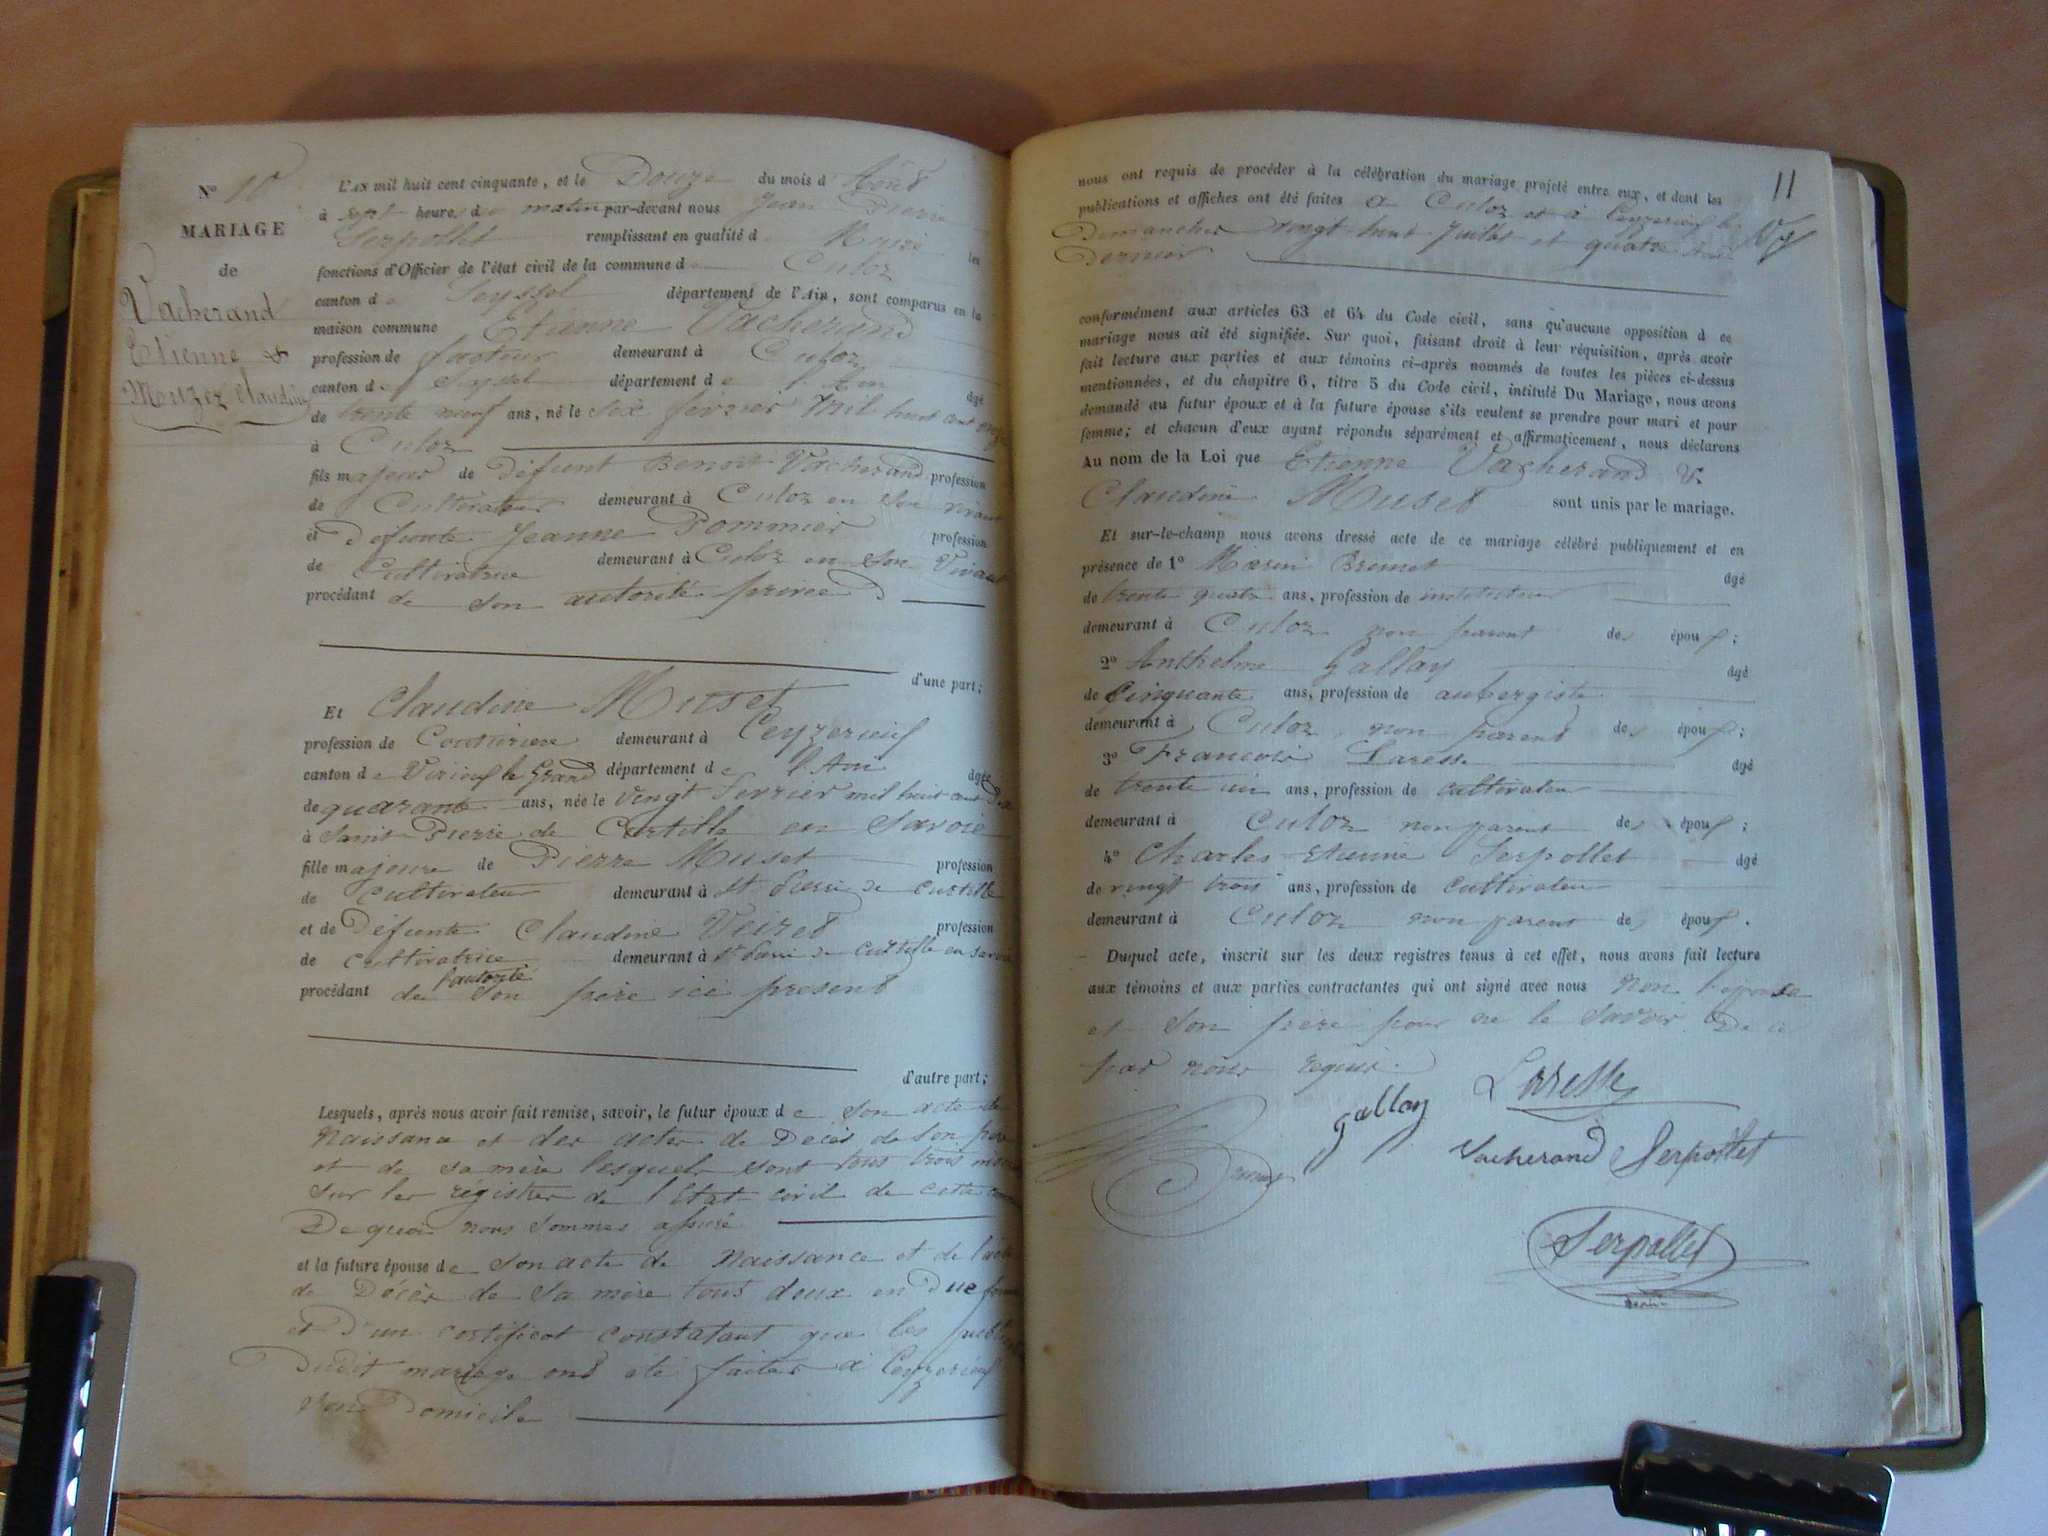 N° 10
MARIAGE
de
Vacherand
Etienne &
Muzez Claudine
L'AN mil huit cent cinquante, et le Douze du mois d'Août
à sept heures du matin par-devant nous Jean Pierre
Serpollet remplissant en qualité de Maire les
fonctions d'Officier de l'état civil de la commune de Culoz
canton de Seyssel département de l'Ain, sont comparus en la
maison commune Etienne Vacherand
profession de facteur demeurant à Culoz
canton de Seyssel département de l'Ain âgé
de trente neuf ans, né le six février mil huit cent onze
à Culoz
fils majeur de Défunt Benoit Vacherand profession
de Cultivateur demeurant à Culoz en son vivant
et Défunte Jeanne Pommier profession
de Cultivatrice demeurant à Culoz en son vivant
procédant de son autorité privée
d'une part;
Et Claudine Muset
profession de Couturière demeurant à Ceyzerieuf
canton de Virieuf le Grand département de l'Ain âgée
de quarante ans, née le vingt Fevrier mil huit cent dix
à Saint Pierre de Curtille en Savoie
fille majeure de Pierre Muset profession
de cultivateur demeurant à St Pierre de Curtille
et de Défunte Claudine Veiret profession
de cultivatrice demeurant à St Pierre de Curtille en Savoie
procédant de l'autorité son père ici present
d'autre part;
Lesquels, après nous avoir fait remise, savoir, le futur époux de son acte de
Naissance et des actes de Décès de son père
et de sa mère lesquels sont tous trois
sur les régistres de l'Etat civil de cette
De quoi nous sommes assuré
et la future épouse de son acte de Naissance et de l'acte
de Décès de sa mère tous deux en Due forme
et D'un certificat constatant que les
Dudit mariage ont été faites à Ceyzerieuf
son Domicile
11
nous ont requis de procéder à la célébration du mariage projeté entre eux, et dont les
publications et affiches ont été faites à Culoz et à Ceyzerieuf les
Dimanches vingt huit Juillet et quatre
Dernier
conformément aux articles 63 et 64 du Code civil, sans qu'aucune opposition à ce
mariage nous ait été signifiée. Sur quoi, faisant droit à leur réquisition, après avoir
fait lecture aux parties et aux témoins ci-après nommés de toutes les pièces ci-dessus
mentionnées, et du chapitre 6, titre 5 du Code civil, intitulé Du Mariage, nous avons
demandé au futur époux et à la future épouse s'ils veulent se prendre pour mari et pour
femme; et chacun d'eux ayant répondu séparément et affirmativement, nous déclarons
Au nom de la Loi que Etienne Vacherand &
Claudine Muset sont unis par le mariage.
Et sur-le-champ nous avons dressé acte de ce mariage célébré publiquement et en
présence de 1° Marin Brunet âgé
de trente quatre ans, profession de instituteur
demeurant à Culoz non parent des époux;
2° Anthelme Gallay âgé
de Cinquante ans, profession de aubergiste
demeurant à Culoz non parent des époux;
3° Francois Laresse âgé
de trente un ans, profession de cultivateur
demeurant à Culoz non parent des époux;
4° Charles Etienne Serpollet âgé
de vingt trois ans, profession de cultivateur
demeurant à Culoz non parent des époux.
Duquel acte, inscrit sur les deux registres tenus à cet effet, nous avons fait lecture
aux témoins et aux parties contractantes qui ont signé avec nous Non l'épouse
et son père pour ne le savoir De ce
par nous requis.
Laresse
Gallay
Vacherand Serpollet
Brunet
Serpollet